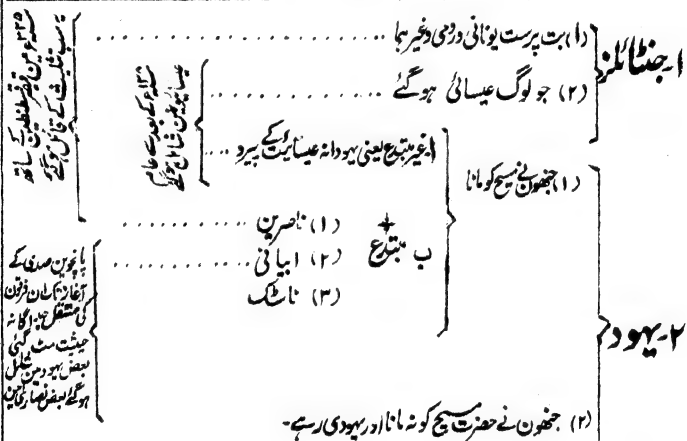 ۱۔ جنٹائلز
(۱) بت پرست یونانی ورومی وغیرہما
(۲) جو لوگ عیسائی ہوگئے
۲۔ یہود
(۱) جنھون نے مسیح کو مانا
ا غیر مبتدع یعنی یہودانہ عیسائیت کے پیرو
ب مبتدع
(۱) ناصرین
(۲) ابیانی
(۳) ناٹک
(۲) جنھون نے حضرت مسیح کو نہ مانا اور یہودی رہے۔
کے بعد سے عام
عیسائیون مین شامل ہوگئے
۳۲۵
مین قیصر قسطنطین کے ساتھ
یہ سب تثلیث کے قائل ہوگئے
پانچوین صدی کے
آغاز تک ان فرقون
کی مستقل جداگانہ
حیثیت مٹ گئی
بعض یہود مین شامل
ہوگئے بعض نصاری مین